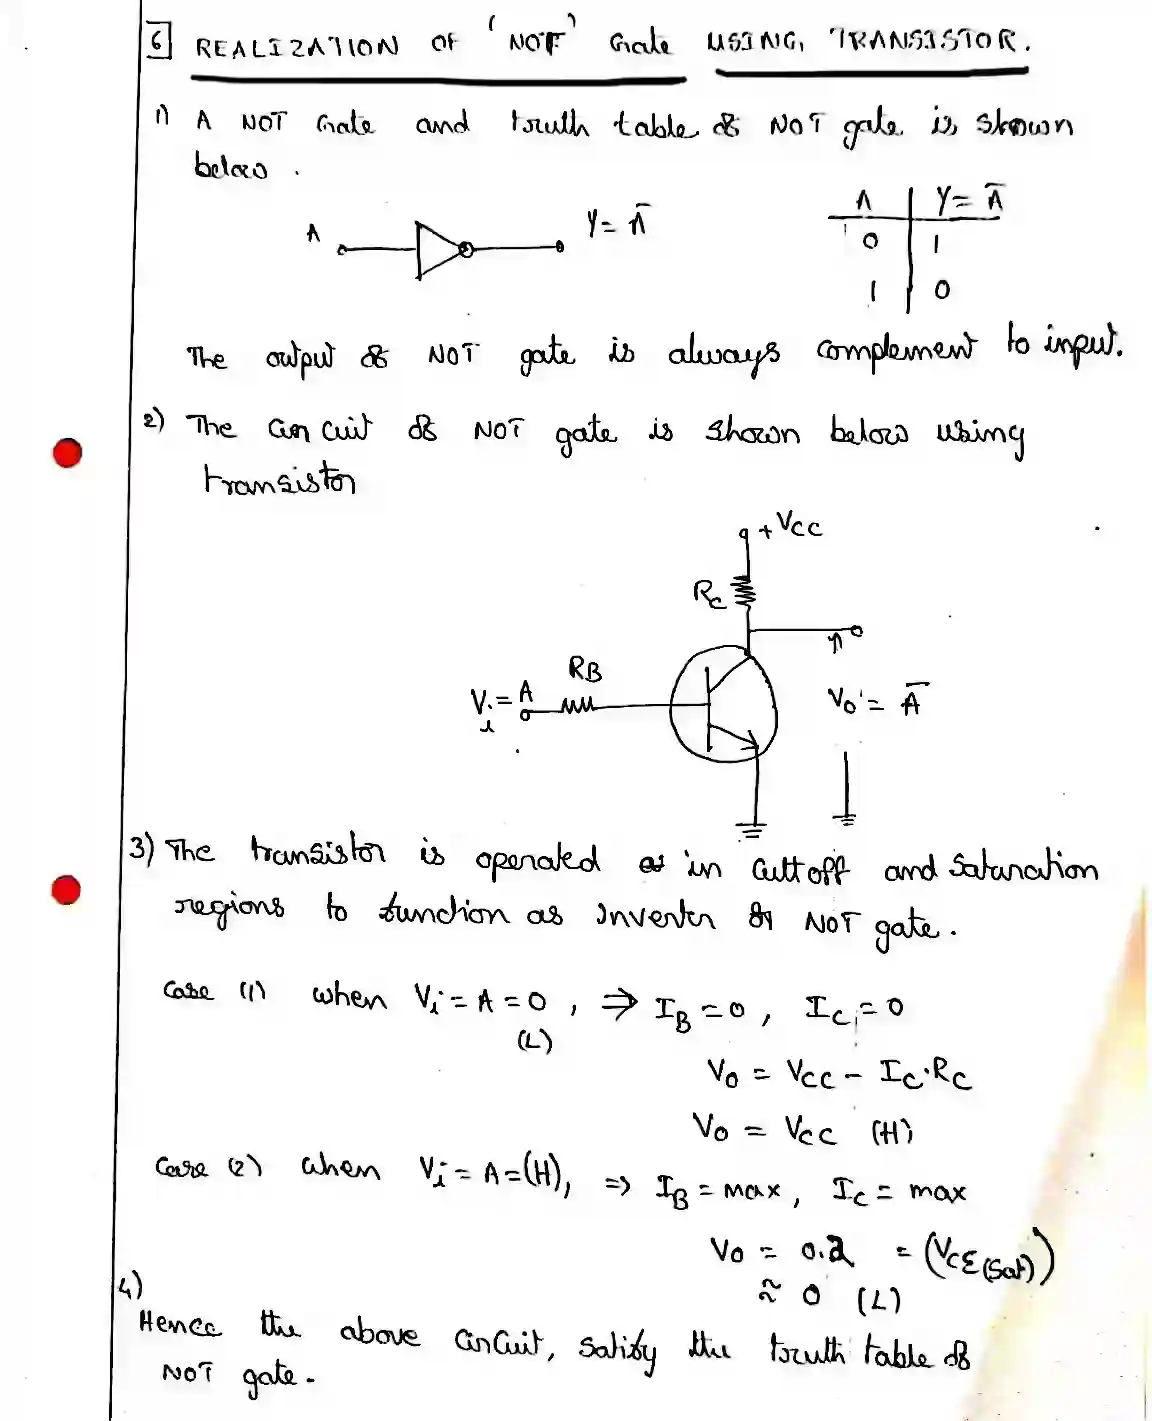 6 REALIZATION OF 'NOT' Gate USING TRANSISTOR.
1) A NOT Gate and truth table of NOT gate is shown
below.
A Y = Ā
A Y = Ā
0 1
1 0
The output of NOT gate is always complement to input.
2) The circuit of NOT gate is shown below using
transistor
+VCC
RC
RB
Vi = A
Vo = Ā
3) The transistor is operated in Cuttoff and Saturation
regions to function as Inverter or NOT gate.
Case (1) when Vi = A = 0, ⇒ IB = 0, IC = 0
(L)
Vo = VCC - IC·RC
Vo = VCC (H)
Case (2) when Vi = A = (H), ⇒ IB = max, IC = max
Vo = 0.2 = (VCE(Sat))
≈ 0 (L)
4)
Hence the above circuit, satisfy the truth table of
NOT gate.